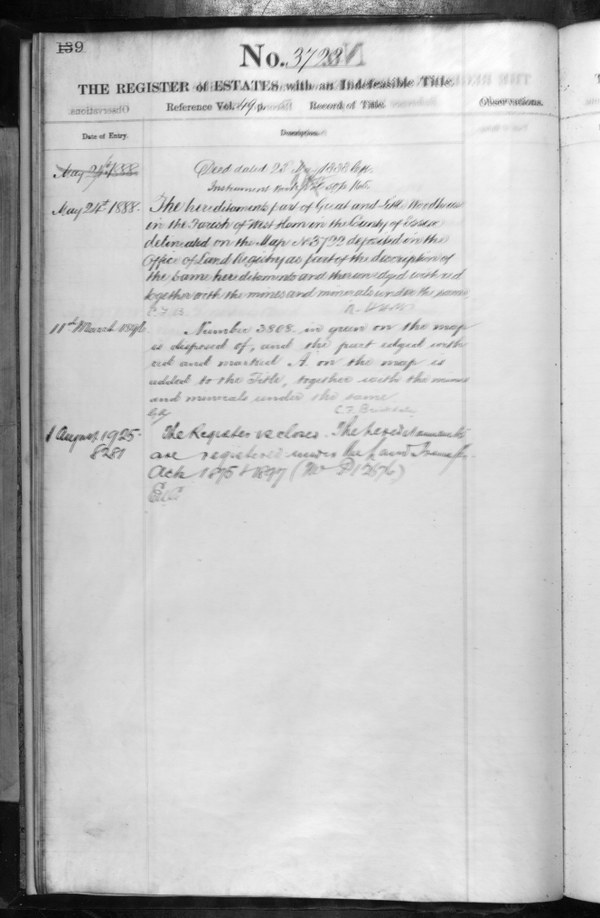 139
No. 3723
THE REGISTER of ESTATES with an Indefeasible Title.
Reference Vol. 49 p. Record of Title.
Observations.
Date of Entry.
Description.
May 24th 1888
Deed dated 1888
Instrument
May 24th 1888.
The hereditaments part of Great and Little
in the Parish of West Ham in the County of Essex
delineated on the Map No 3723 deposited in the
Office of Land Registry as part of the description of
the same hereditaments and thereon edged with red
together with the mines and minerals under the same
11th March
Number 3808 in green on the map
is disposed of, and the part edged with
red and marked A on the map is
added to the Title, together with the mines
and minerals under the same
C. F. Brickdale
1 August 1925.
8281
The Register is closed. The hereditaments
are registered under the Land Transfer
Acts 1875 & 1897 (No